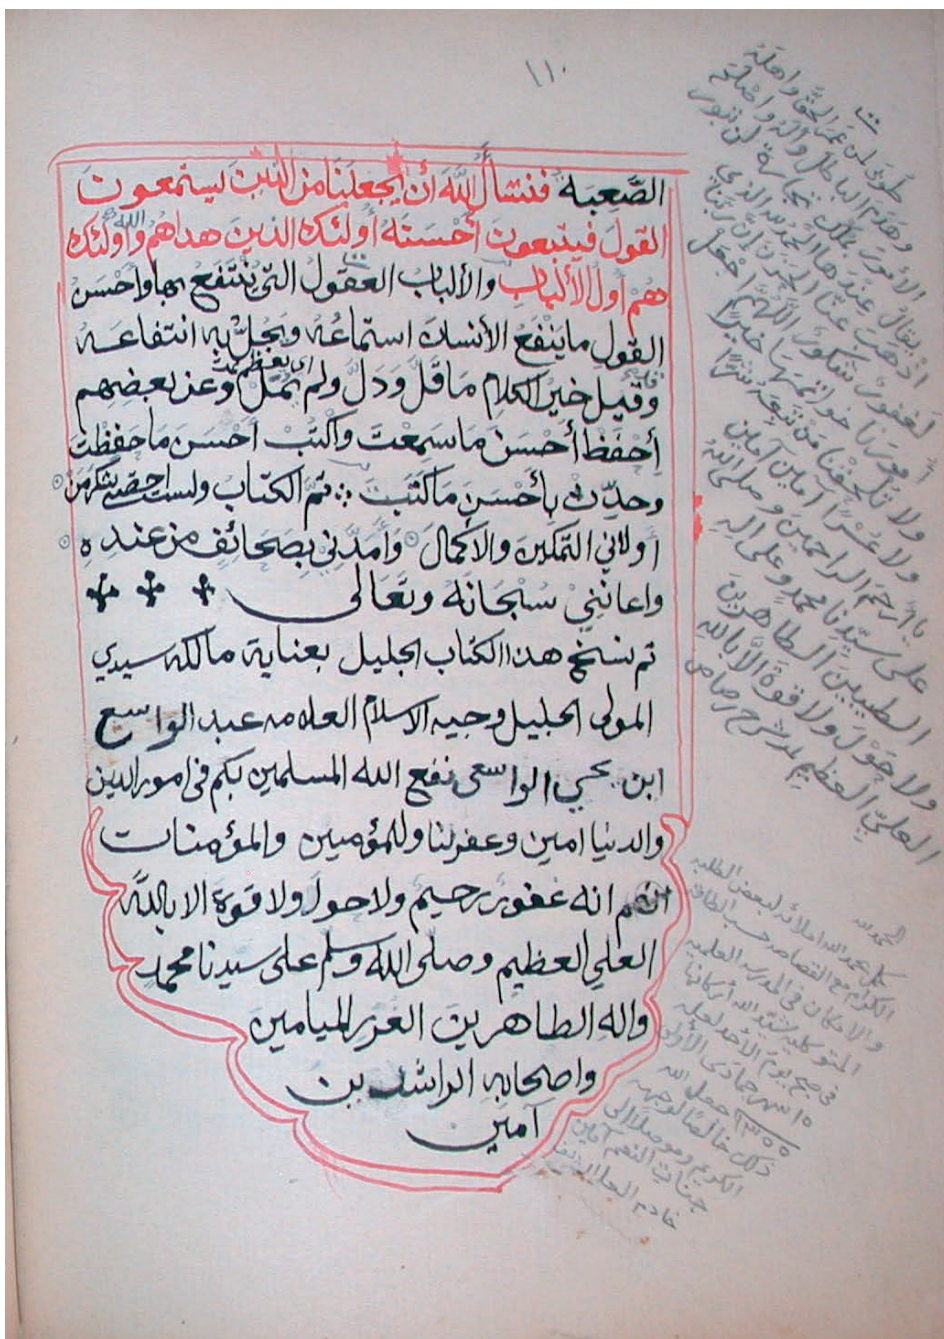 ١١٠
الصَّعبة فنسْأل اللَّهَ أن يجعلنَا من الذين يستمعون
القول فيتبعون أحسنه أولئك الذين هداهم الله وأولئك
هم أولوا الألباب والألباب العقول التي ينتفع بها وأحسن
القول ما ينفع الأنسان استماعُه ويجلُّ به انتفاعه
وقيل خير الكلام ما قلَّ ودلَّ ولم يُمَلّ وعن بعضهم
أحفظ أحسن ما سمعت وأكتب أحسن ما حفظت
وحدِّث بأحسن ما كتبت تمَّ الكتاب ولست احصي شكر من
أولاني التمكين والاكمال وأمدَّني بصحائف من عنده
واعانني سبحانه وتعَالى
تم نسخ هذا الكتاب الجليل بعناية مالكه سيدي
المولى الجليل وجيه الاسلام العلامه عبد الواسع
ابن يحيى الواسعي نفع الله المسلمين بكم في امور الدين
والدنيا امين وغفر لنا وللمؤمنين والمؤمنات
انه غفور رحيم ولا حول ولا قوة الا بالله
العلي العظيم وصلّى الله وسلّم على سيدنا محمد
واله الطاهرين الغرر الميامين
واصحابه الراشدين
آمين
طوبى لمن عمر الحق واهله
وهدم الباطل وآله واصلح
الأمور بملك تجارة لن تبور
اذ يقال عندها الحمد لله الذي
اذهب عنا الحزن إن ربنا
لغفور شكور اللهم اجعل
أمورنا خواتمها خيرا
ولا تلحقنا من تبعه شرا
ولا عسرا آمين آمين
يا أرحم الراحمين وصلى الله
على سيدنا محمد وعلى اله
الطيبين الطاهرين
ولا حول ولا قوة الا بالله
العلي العظيم
الحمد لله
كمل بحمد الله املائه لبعض الطلبه
الكرام مع القصاصه حسب الطاقه
والامكان في المدرسه العلميه
المتوكليه شيد الله أركانها
في صبح يوم الأحد لعله
١٥ شهر جمادى الأولى
١٣٥٥ جعل الله
ذلك خالصا لوجهه
الكريم وموصلا الى
جنات النعيم آمين
خادم العلم